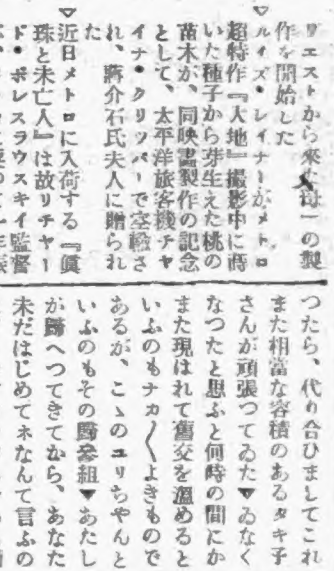 リエストから來た母」の製
作を開始した
▽ルイズ・レイナーがメトロ
超特作『大地』撮影中に蒔
いた種子から芽生えた桃の
苗木が、同映畫製作の記念
として、太平洋旅客機チヤ
イナ・クリツパーで空輸さ
れ、蔣介石氏夫人に贈られ
た
▽近日メトロに入荷する『眞
珠と未亡人』は故リチヤー
ド・ボレスラウスキイ監督
つたら、代り合ひましてこれ
また相當な容積のあるタキ子
さんが頑張つてゐた▼ゐなく
なつたと思ふと何時の間にか
また現はれて舊交を溫めると
いふのもナカ〱よきもので
あるが、こゝのユリちやんと
いふのもその組▼あたし
が歸へつてきてから、あなた
未だはじめてネなんて言ふの